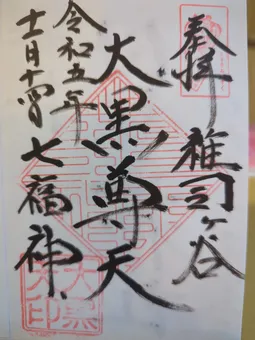 奉拝
雑司ヶ谷
大黒尊天
令和五年
十一月十四日
七福神
大黒天印